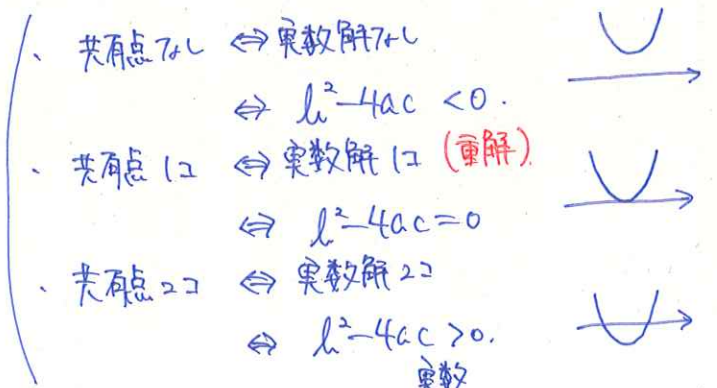 ・共有点なし ⇔ 実数解なし
⇔ b²-4ac <0.
・共有点1コ ⇔ 実数解1コ (重解)
⇔ b²-4ac=0
・共有点2コ ⇔ 実数解2コ
⇔ b²-4ac >0.
実数